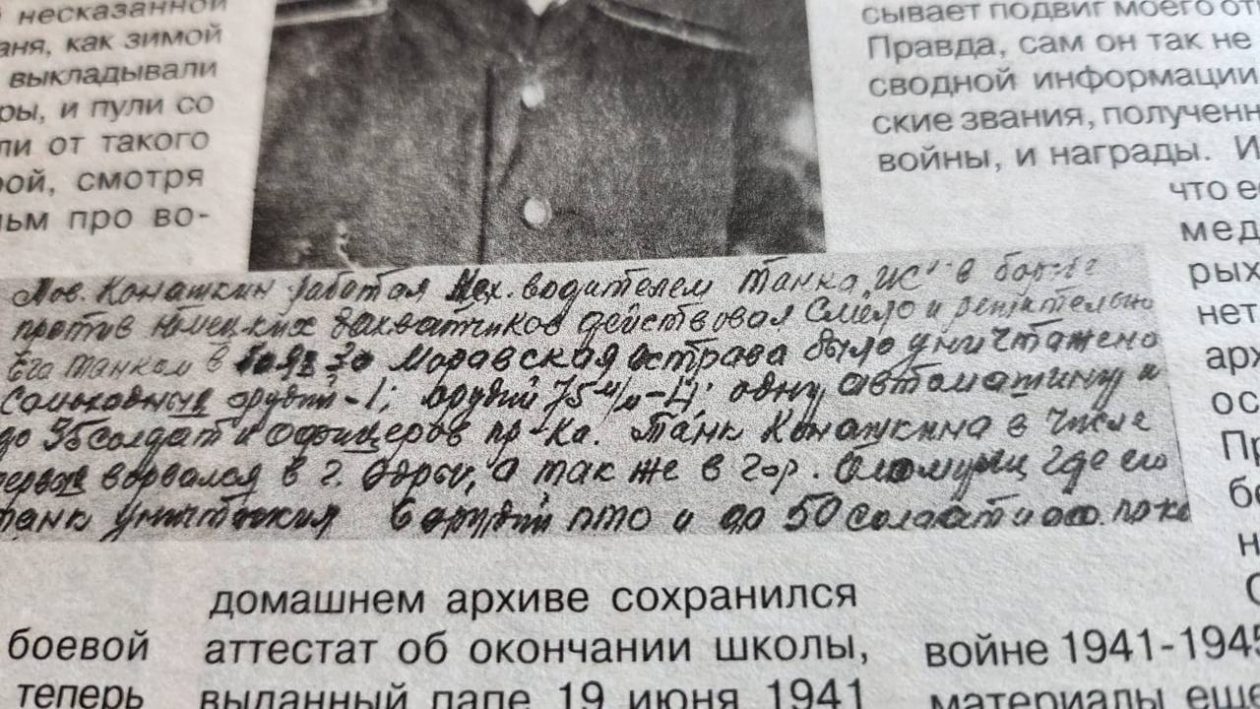 несказанной
аня, как зимой
выкладывали
ры, и пули со
ли от такого
рой, смотря
ьм про во-
сывает подвиг моего от
Правда, сам он так не
сводной информации
ские звания, полученн
войны, и награды. И
что е
мед
рых
нет
арх
ос
Пр
бо
н
Тов. Конашкин работая Мех. водителем танка "ИС" в борьбе
против немецких захватчиков действовал Смело и решительно
Его танком в боях за Моравская острава было уничтажено
Самоходных орудий-1; орудий 75 м/м-4 одну автомашину и
до 35 солдат и офицеров пр-ка. Танк Конашкина в числе
первых ворвался в г. Одры, а так же в гор. Оломоуц где его
танк уничтожил 6 орудий пто и до 50 солдат и
домашнем архиве сохранился
аттестат об окончании школы,
выданный папе 19 июня 1941
боевой
теперь
войне 1941-1945
материалы еще